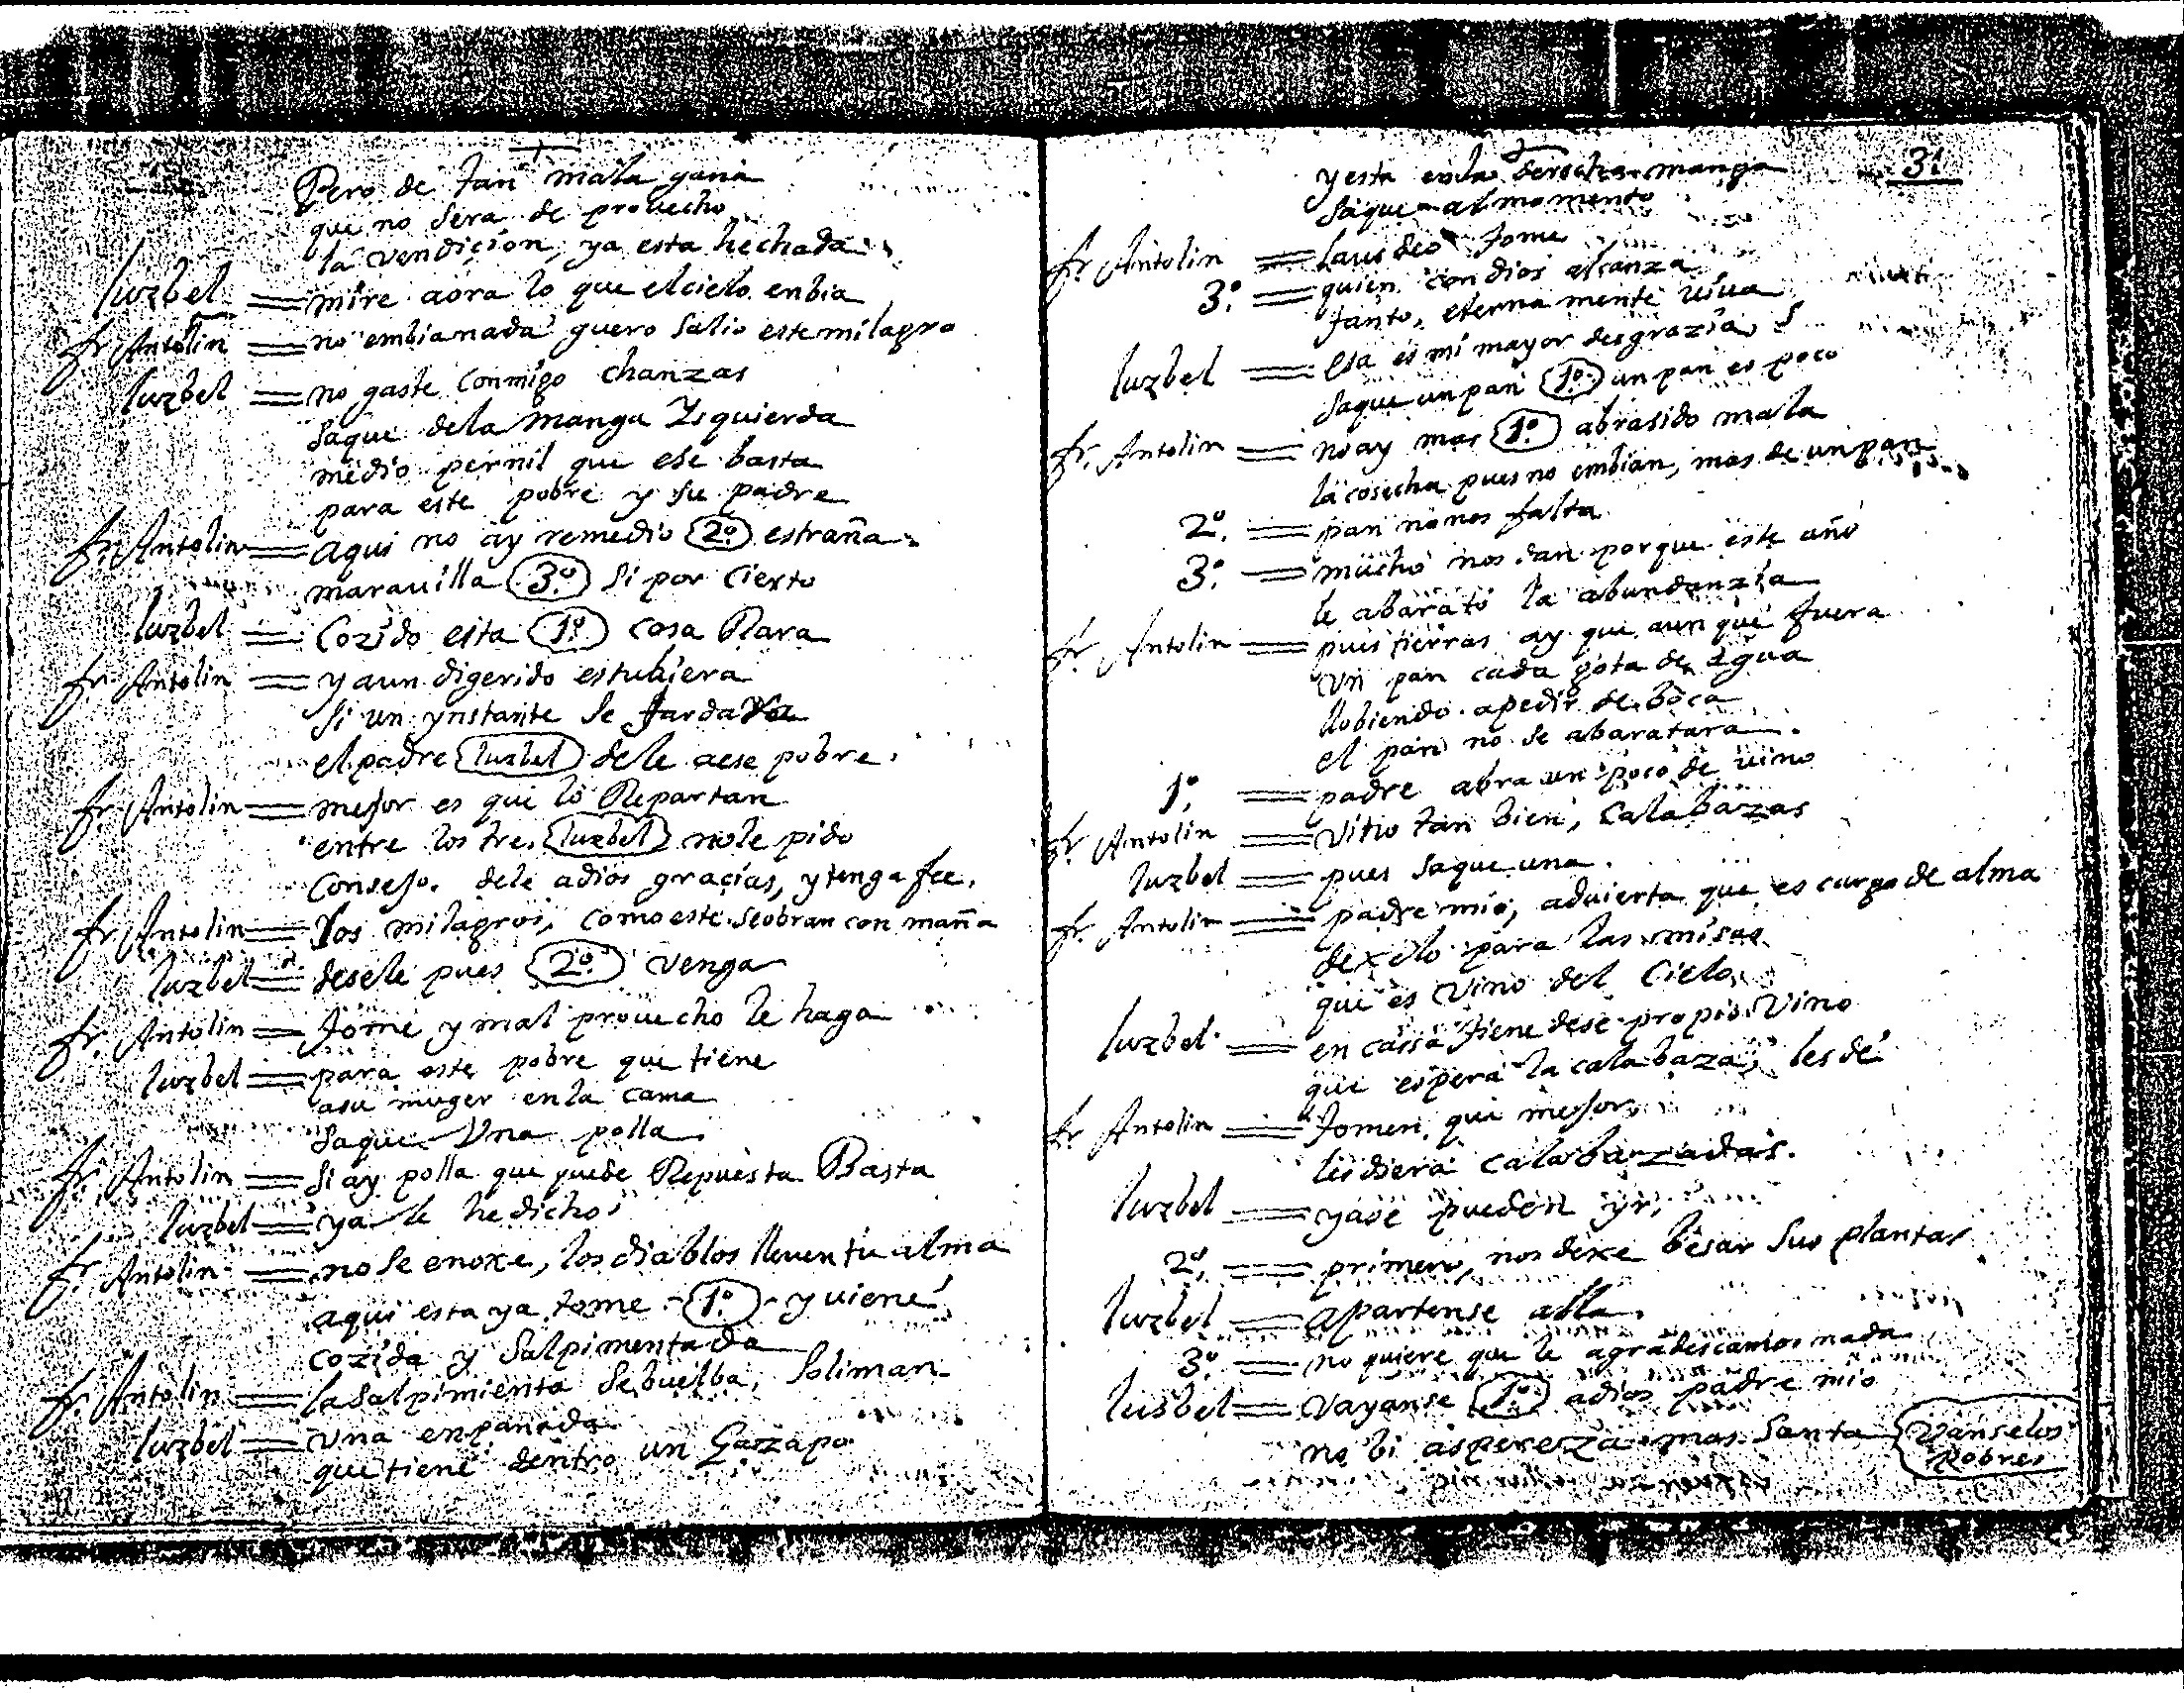 Pero de tan mala gana
que no sera de prouecho
la vendiçion, ya esta hechada
luzbel = mire aora lo que el cielo enbia
fr Antolin = no embia nada guero salio este milagro
luzbel = no gaste conmigo chanzas
saque de la manga Ysquierda
medio pernil que ese basta
para este pobre y su padre
fr. Antolin = aqui no ay remedio 2º estraña
marauilla 3º si por cierto
luzbel = Cozido esta 1º cosa Rara
fr. Antolin = y aun digerido estubiera
si un ynstante se tardara
el padre luzbel dele aese pobre.
fr. Antolin = mejor es que lo Repartan
entre los tres luzbel nole pido
Consejo. dele adios gracias, y tenga fee.
fr Antolin = los milagros, como este se obran con maña
luzbel = desele pues 2º venga
fr. Antolin = tome y mal prouecho le haga
luzbel = para este pobre que tiene
asu muger en la cama
saque Vna polla
fr. Antolin = si ay polla que puede Repuesta Basta
luzbel = ya le he dicho
fr Antolin = no se enoxe, los diablos lleuen tu alma
aqui esta ya tome 1º y uiene
cozida y salpimentada
fr. Antolin = la salpimienta se buelba, soliman
luzbel = vna enpanada
que tiene dentro un Gazapo
31
y esta en la derecha manga
saque al momento
fr Antolin = laus deo tome
3º = quien con dios alcanza
tanto, eterna mente uiua
luzbel = esa es mi mayor desgrazia
saque un pan 1º un pan es poco
fr. Antolin = no ay mas 1º abra sido mala
la cosecha pues no embian, mas de un pan
2º = pan no nos falta
3º = mucho nos dan porque este año
le abarato la abundanzia
fr Antolin = pues tierras ay que aun que fuera
vn pan cada gota de agua
llobiendo apedir de boca
el pan no se abaratara.
1º = padre abra un poco de uino
fr Antolin = vino tan bien, calabazas
luzbel = pues saque una.
fr. Antolin = padre mio, aduierta que es cargo de alma
dexelo para las misas
que es vino del Cielo
luzbel = en cassa tiene dese propio Vino
que espera la calabaza, les dé
fr Antolin = tomen, que mejor
les diera calabazadas.
luzbel = ya se pueden yr.
2º = primero, nos dexe besar sus plantas
luzbel = apartense alla
3º = no quiere que le agradescamos nada
luisbel = vayanse 1º adios padre mio
no bi aspereza mas santa Vanselos
pobres